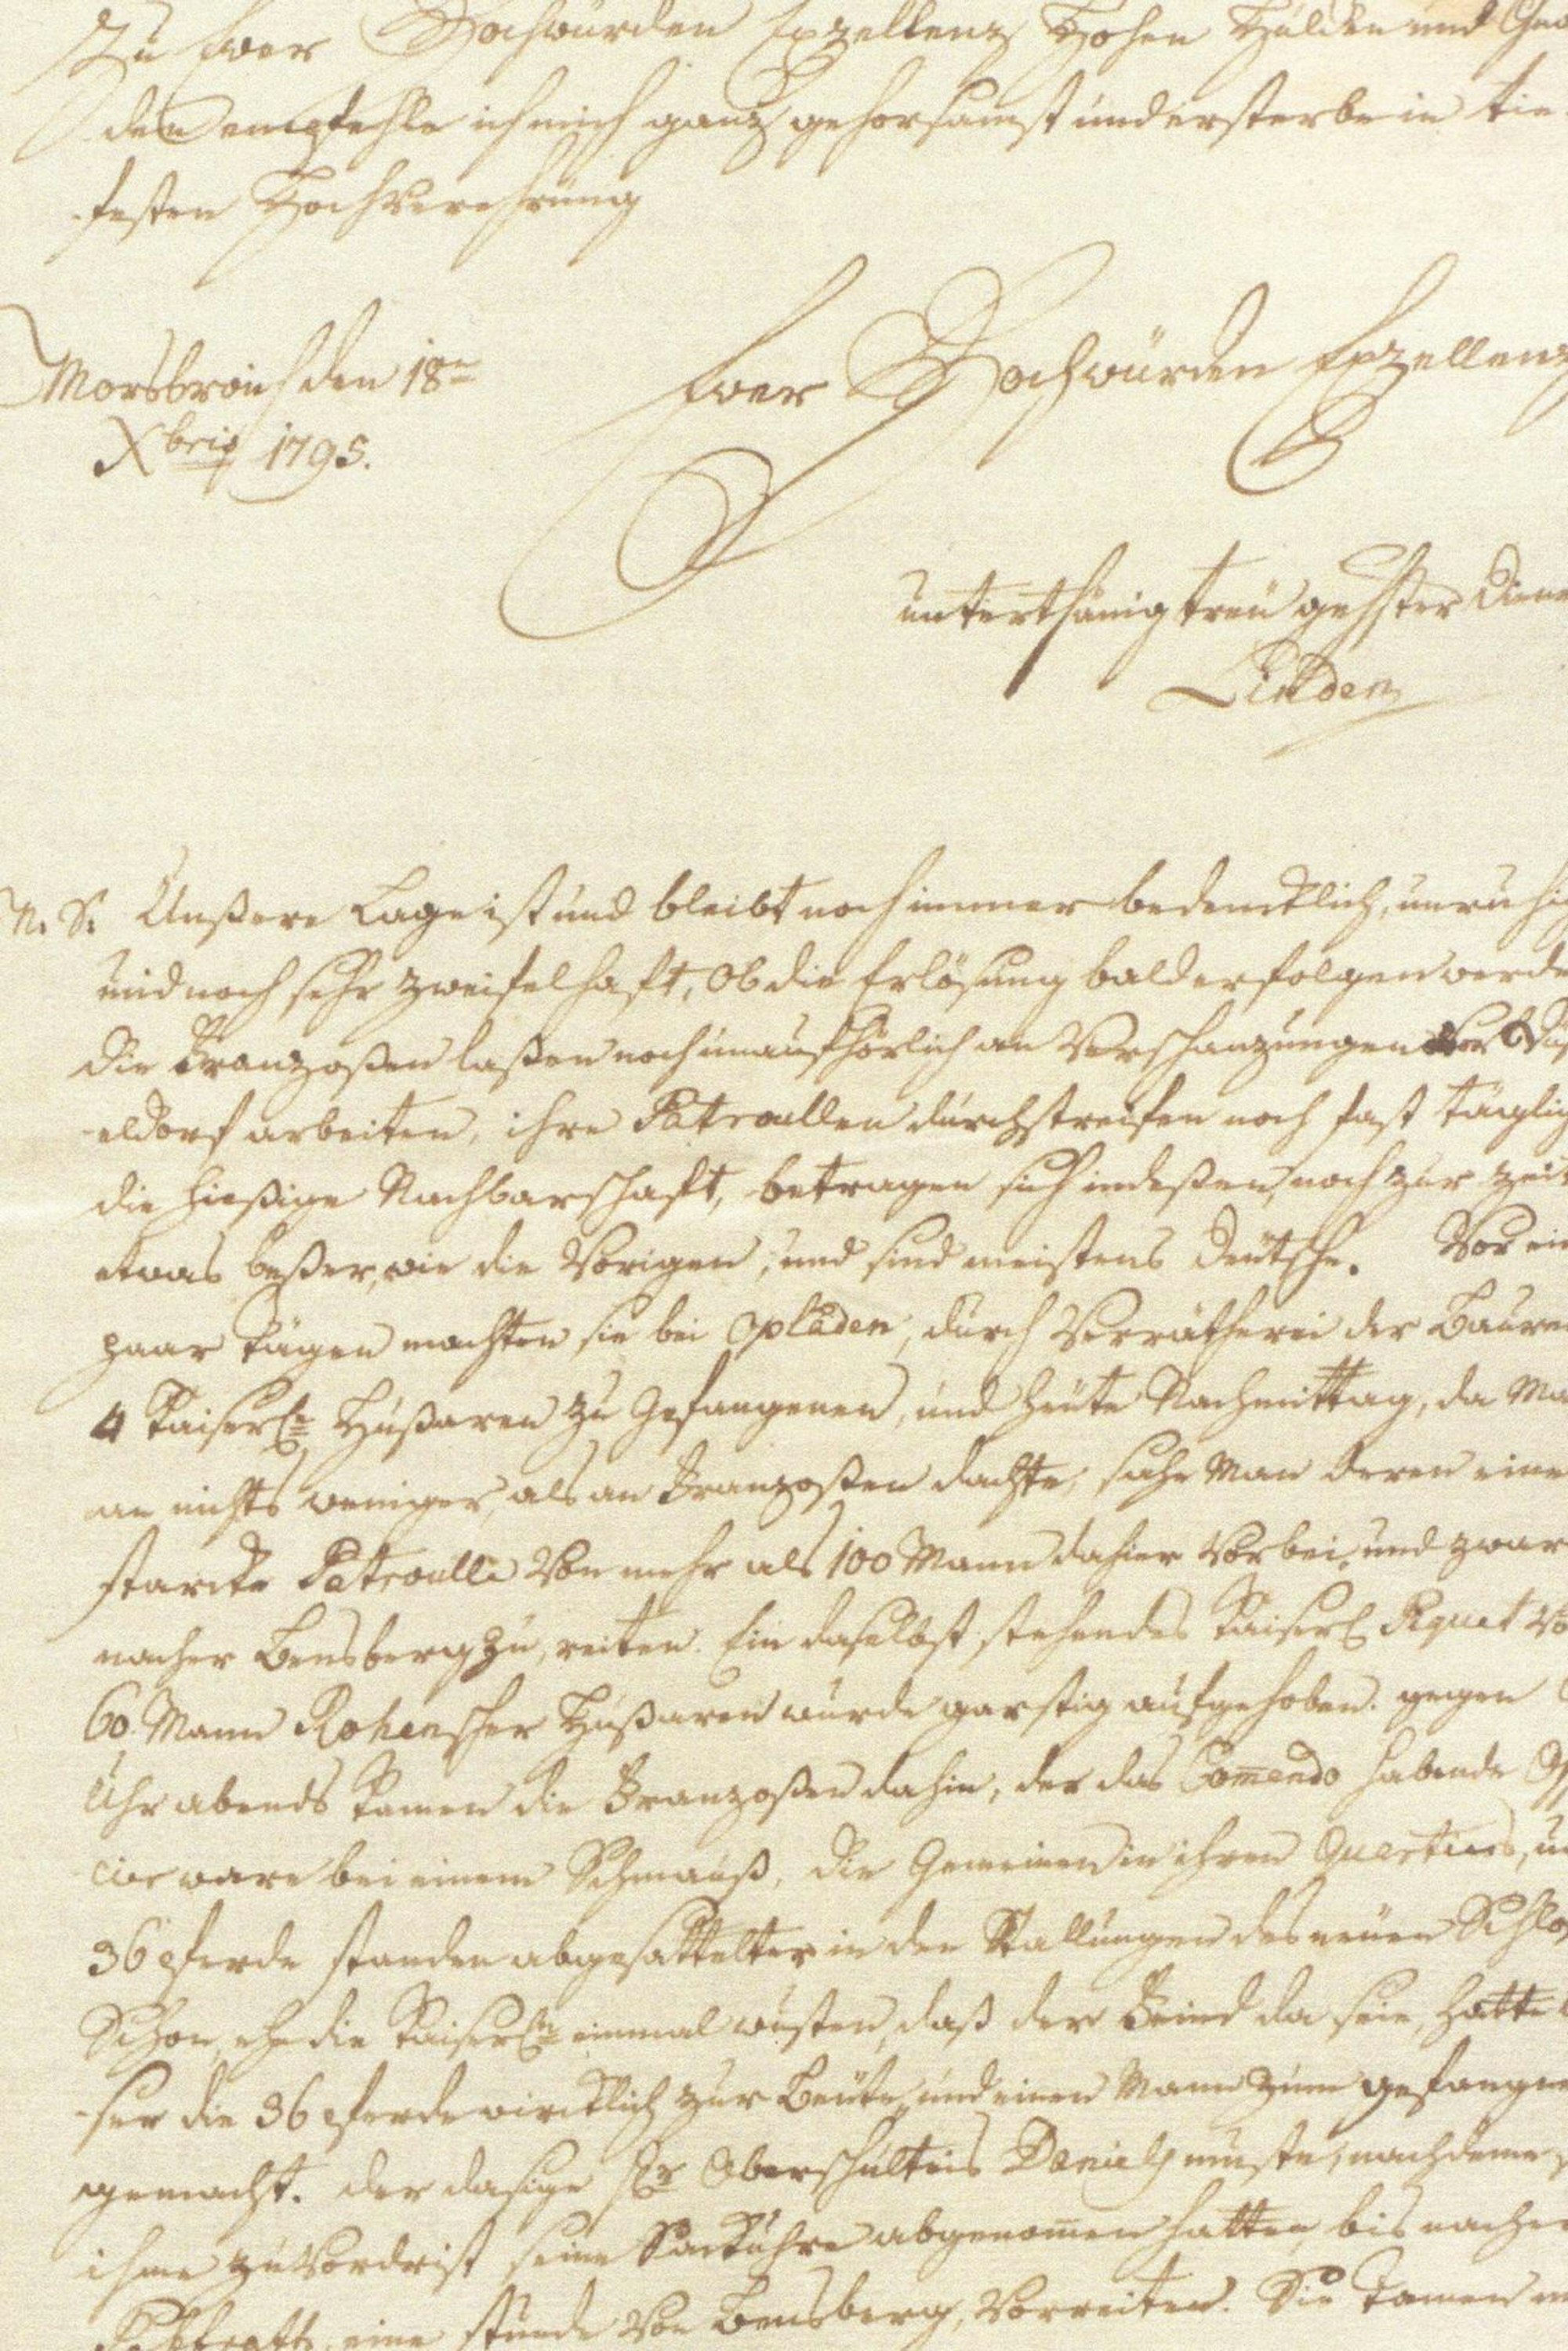 Zu Euer Hochwürden Exzellenz Hohen Hulden und Gna
den empfehle ich mich ganz gehorsamst und ersterbe in tie
festen Hochverehrung
Morsbroich den 18n
Xbris 1795.
Euer Hochwürden Exzellenz
unterthänig treu gehster Diene
Linden
N. S. Unßere Lage ist und bleibt noch immer bedencklich, unruhi
und noch sehr zweifelhaft, Ob die Erlösung bald erfolgen werde
die Franzoßen laßen noch unaufhörlich an Verschanzungen vor Düß
eldorf arbeiten, ihre Patroullen durchstreifen noch fast täglich
die hießige Nachbarschaft, betragen sich indeßen, noch zur zeit
etwas beßer, wie die Vorigen, und sind meistens Deutsche. Vor ein
paar tägen machten sie bei Opladen, durch Verrätherei der Bauren
4 Kaiserle Hußaren zu Gefangenen, und heute Nachmittag, da Ma
an nichts weniger, als an Franzoßen dachte, sahe Man deren eine
starcke Patroulle Von mehr als 100 Mann dahier Vorbei, und zwar
nacher Bensberg zu, reiten. Ein daselbst stehendes Kaiserl Piquet Vo
60 Mann Rohenscher Hußaren wurde garstig aufgehoben. gegen
Uhr abends kamen die Franzoßen dahin, der das Comendo habende Of
cier ware bei einem Schmauß, die Gemeinen in ihren Quartiers, u
36 Pferde standen abgesattelter in den Stallungen des neuen Schlo
Schon, ehe die Kaiserln einmal wusten, daß der Feind da seie, hatte
ser die 36 Pferde wircklich zur Beute, und einen Mann zum gefangen
gemacht. der dasige Hr Oberschulteis Daniels muste, nachdeme
ihme zuvordrist seine Sackuhre abgenomen hatten, bis nacher
eine stunde Von Bensberg, Vorreiten. Sie kamen